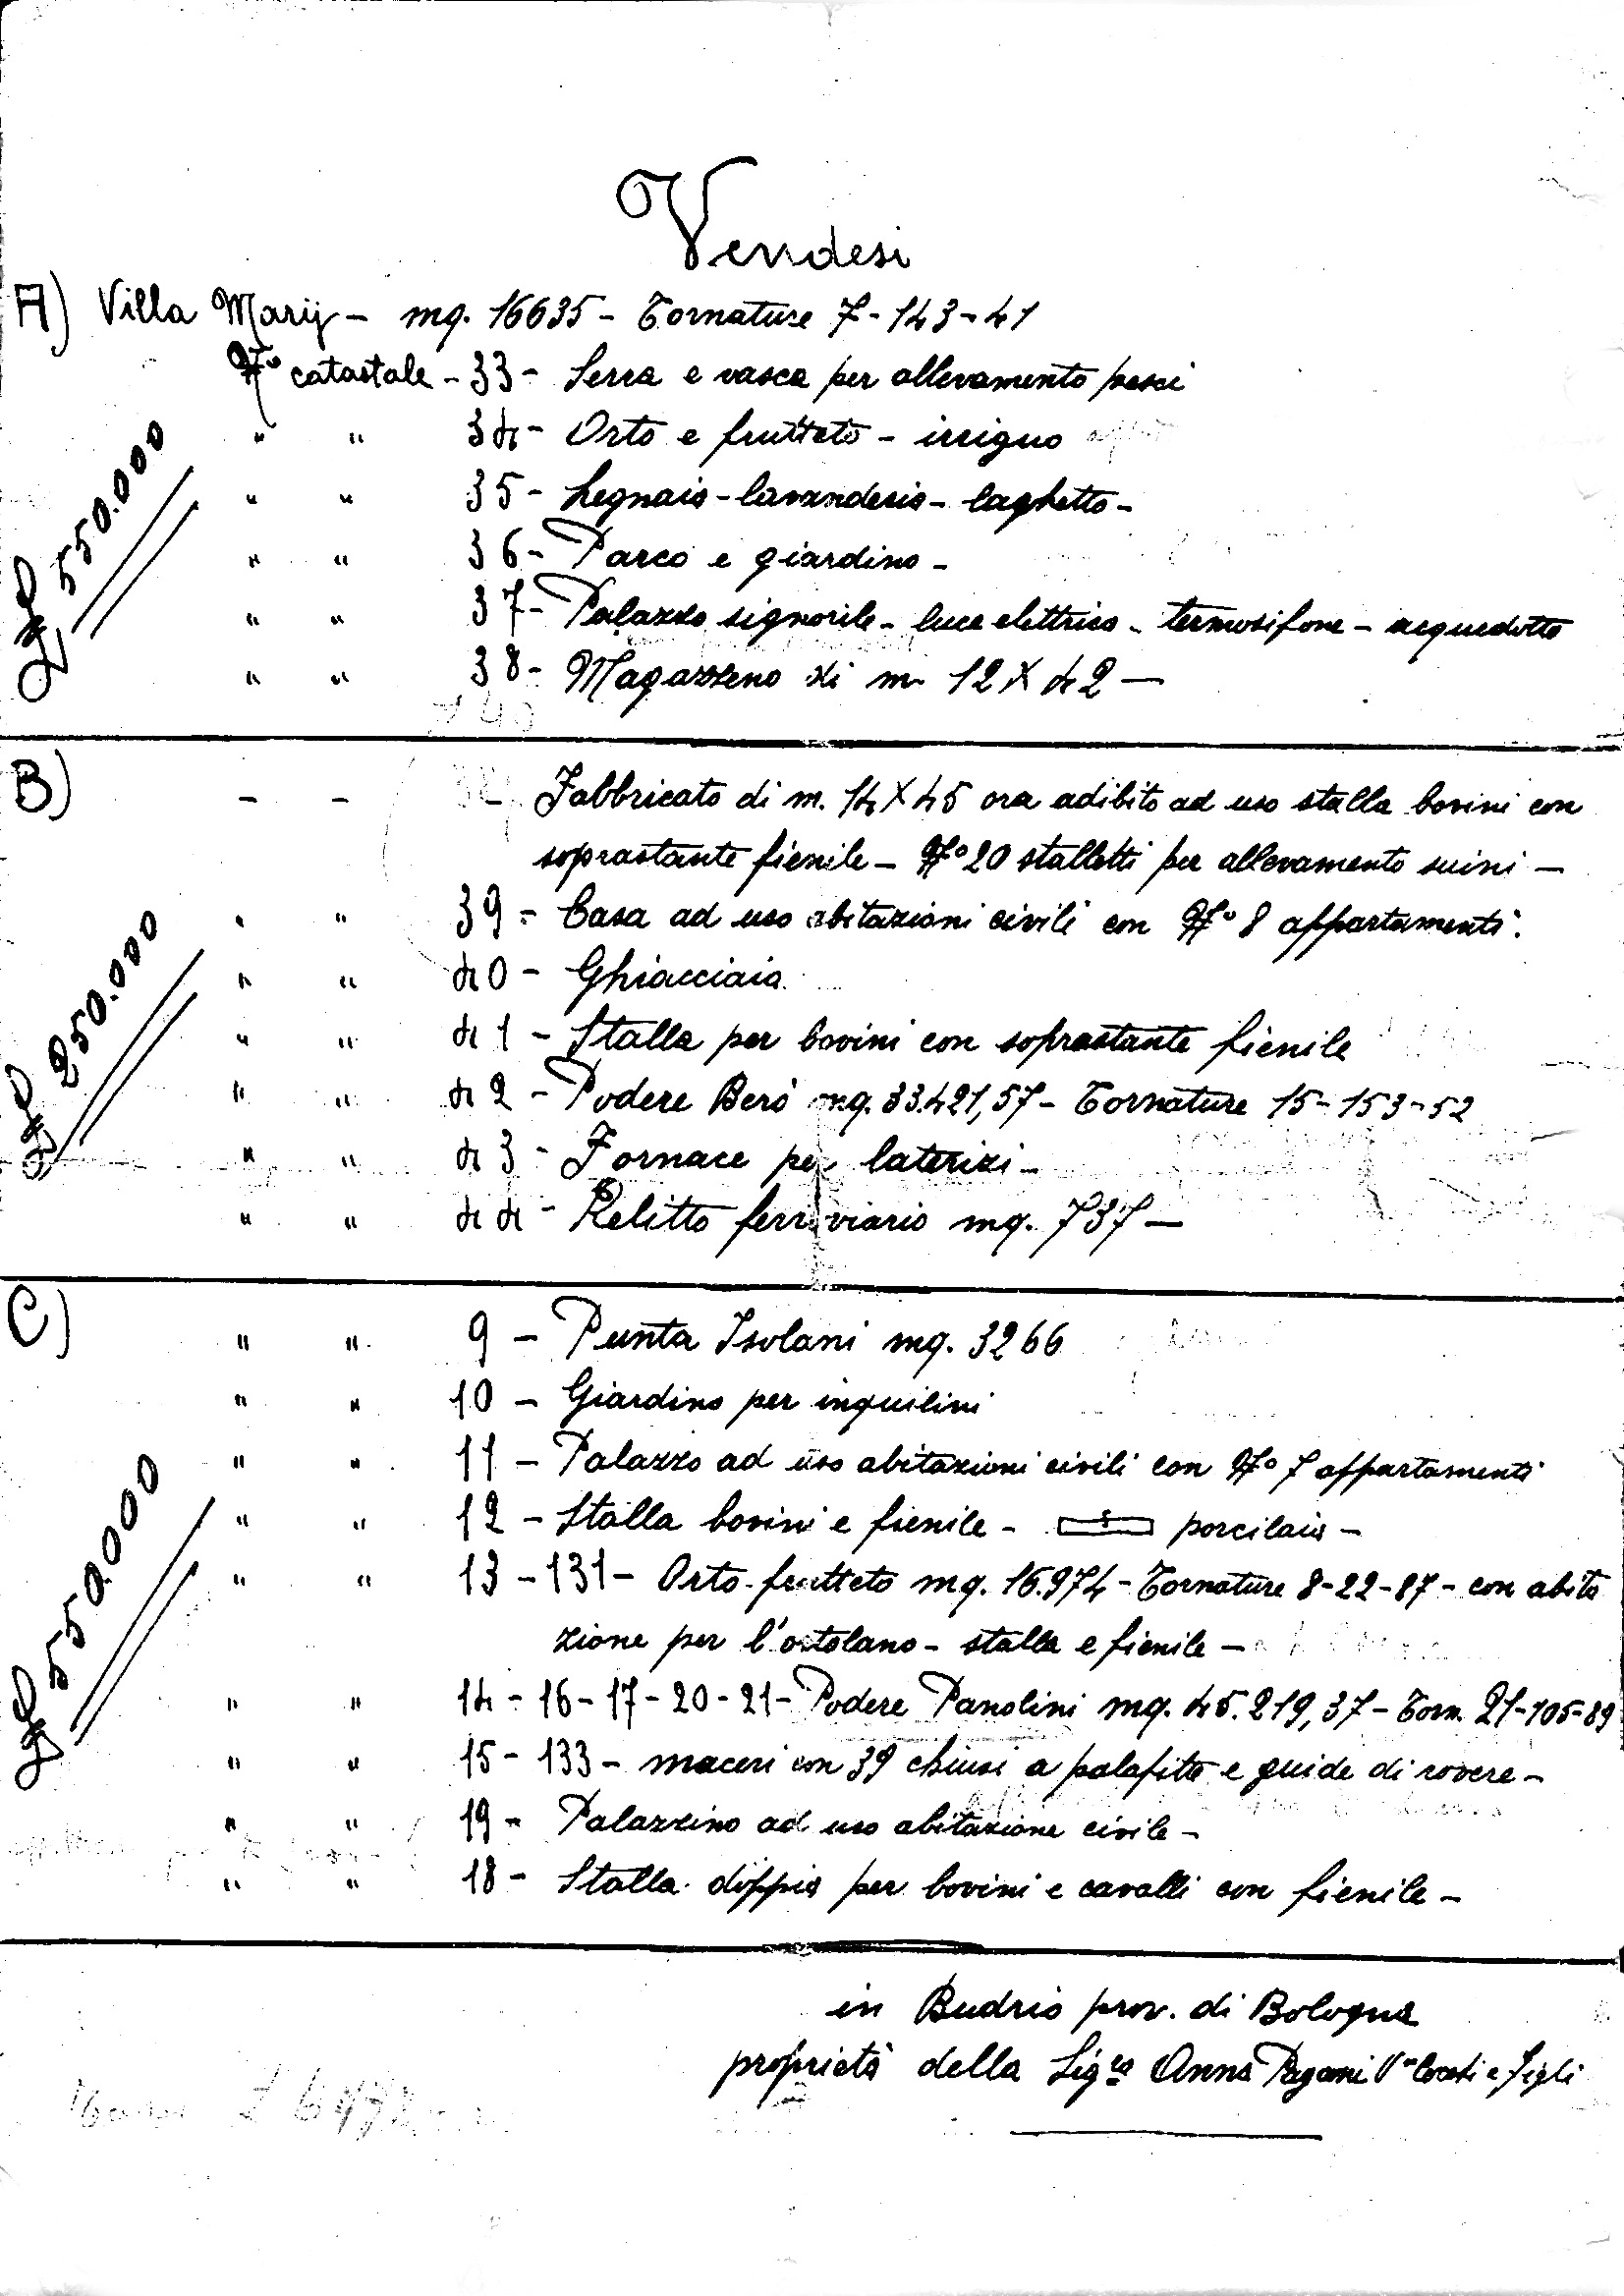 Vendesi
A) Villa Marij - mq. 16635 - Tornature 7-143-41
N° catastale - 33 - Serra e vasca per allevamento pesci
" " 34 - Orto e frutteto - irriguo
" " 35 - Legnaia - lavanderia - laghetto -
" " 36 - Parco e giardino -
" " 37 - Palazzo signorile - luce elettrica - termosifone - acquedotto
" " 38 - Magazzeno di m. 12 X 42 —
£ 550.000
B) - - Fabbricato di m. 14 X 45 ora adibito ad uso stalla bovini con
soprastante fienile - N° 20 stalletti per allevamento suini -
" " 39 - Casa ad uso abitazioni civili con N° 8 appartamenti.
" " 40 - Ghiacciaia
" " 41 - Stalla per bovini con soprastante fienile
" " 42 - Podere Berò mq. 33.421,57 - Tornature 15-153-52
" " 43 - Fornace per laterizi -
" " 44 - Relitto ferroviario mq. 737 —
£ 250.000
C) " " 9 - Punta Isolani mq. 3266
" " 10 - Giardino per inquilini
" " 11 - Palazzo ad uso abitazioni civili con N° 7 appartamenti
" " 12 - Stalla bovini e fienile - porcilaia -
" " 13 - 131 - Orto-frutteto mq. 16.974 - Tornature 8-22-87 - con abita
zione per l'ortolano - stalla e fienile -
" " 14 - 16 - 17 - 20 - 21 - Podere Panolini mq. 45.219,37 - Torn. 21-105-89
" " 15 - 133 - maceri con 39 chiusi a palafitte e guide di rovere -
" " 19 - Palazzino ad uso abitazione civile -
" " 18 - Stalla doppia per bovini e cavalli con fienile -
£ 550.000
in Budrio prov. di Bologna
proprietà della Sig.ra Anna Pagani V.va e figli